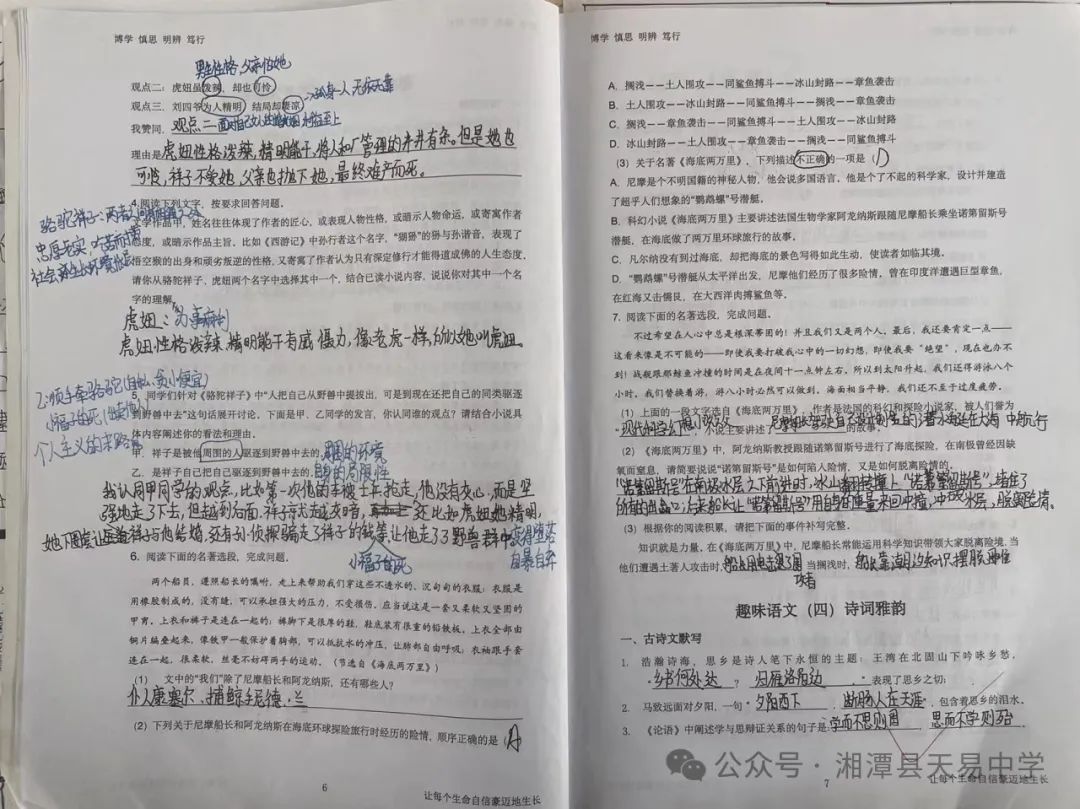 博学 慎思 明辨 笃行
男生性格,父亲怕她
观点二:虎妞虽泼辣,却也可怜
观点三:刘四爷为人精明,结局却凄凉
我赞同:观点二
理由是虎妞性格泼辣、精明能干,将人和厂管理的井井有条。但是她也
可怜,祥子不爱她,父亲也抛下她,最终难产而死。
4.阅读下列文字,按要求回答问题。
文学作品中,姓名往往体现了作者的匠心,或表现人物性格,或暗示人物命运,或寄寓作者
态度,或暗示作品主旨。比如《西游记》中孙行者这个名字,“猢狲”的狲与孙谐音,表现了
悟空猴的出身和顽劣叛逆的性格,又寄寓了作者认为只有保定修行才能得道成佛的人生态度,
请你从骆驼祥子、虎妞两个名字中选择其中一个,结合已读小说内容,说说你对其中一个名
字的理解。
骆驼祥子:
忠厚老实
虎妞:
虎妞性格泼辣、精明能干有威慑力,像老虎一样,所以她叫虎妞。
乙:顺手牵骆驼(自私、贪小便宜)
小福子的死
个人主义的末路鬼
5、同学们针对《骆驼祥子》中“人把自己从野兽中提拔出,可是到现在还把自己的同类驱逐
到野兽中去”这句话展开讨论,下面是甲、乙同学的发言,你认同谁的观点?请结合小说具
体内容阐述你的看法和理由。
甲.祥子是被他周围的人驱逐到野兽中去的。
周围的环境
乙.是祥子自己把自己驱逐到野兽中去的。
自身的局限性
我认同甲同学的观点,比如第一次他的车被士兵抢走,他没有灰心,而是坚
强地走了下去,但越到后面,祥子
还比如虎妞她精明,
她下圈套让祥子与他结婚,还有孙侦探骗走了祥子的钱等,让他走了了野兽群中
变得堕落
自暴自弃
小福子的死
6.阅读下面的名著选段,完成问题。
两个船员,遵照船长的嘱咐,走上来帮助我们穿这些不透水的、沉甸甸的衣服;衣服是
用橡胶制成的,没有缝,可以承担强大的压力,不受损伤。应当说这是一套又柔软又坚固的
甲胄。上衣和裤子是连在一起的;裤脚下是很厚的鞋,鞋底装有很重的铅铁板。上衣全部由
铜片编叠起来,像铁甲一般保护着胸部,可以抵抗水的冲压,让肺部自由呼吸;衣袖跟手套
连在一起,很柔软,丝毫不妨碍两手的运动。(节选自《海底两万里》)
(1) 文中的“我们”除了尼摩船长和阿龙纳斯,还有哪些人?
仆人康塞尔、捕鲸手尼德·兰
(2)下列关于尼摩船长和阿龙纳斯在海底环球探险旅行时经历的险情,顺序正确的是(A
6
让每个生命自信豪迈地生长
博学 慎思 明辨 笃行
A.搁浅——土人围攻——同鲨鱼搏斗——冰山封路——章鱼袭击
B.土人围攻——冰山封路——同鲨鱼搏斗——搁浅——章鱼袭击
C.搁浅——同鲨鱼搏斗——章鱼袭击——土人围攻——冰山封路
D.冰山封路——土人围攻——章鱼袭击——搁浅——同鲨鱼搏斗
(3)关于名著《海底两万里》,下列描述不正确的一项是(D)
A.尼摩是个不明国籍的神秘人物,他会说多国语言。他是个了不起的科学家,设计并建造
了超乎人们想象的“鹦鹉螺”号潜艇。
B.科幻小说《海底两万里》主要讲述法国生物学家阿龙纳斯跟随尼摩船长乘坐诺第留斯号
潜艇,在海底做了两万里环球旅行的故事。
C.凡尔纳没有到过海底,却把海底的景色写得如此生动,使读者如临其境。
D.“鹦鹉螺”号潜艇从太平洋出发,尼摩他们经历了很多险情,曾在印度洋遭遇巨型章鱼,
在红海又击儒艮,在大西洋肉搏鲨鱼等。
7.阅读下面的名著选段,完成问题。
不过希望在人心中总是根深蒂固的!并且我们又是两个人。最后,我还要肯定一点——
这看来像是不可能的——即使我要打破我心中的一切幻想,即使我要“绝望”,现在也办不
到!战舰跟那鲸鱼冲撞的时间是在夜间十一点钟左右。所以到太阳升起,我们还得游泳八个
小时。我们替换着游,游八小时必然可以做到。海面相当平静,我们还不至于过度疲劳。
(1)上面的一段文字选自《海底两万里》,作者是法国的科幻和探险小说家,被人们誉为
“现代科学幻想小说之父”,小说主要讲述了尼摩船长驾驶自己设计制造的潜水艇在大海中航行的故事。
(2)《海底两万里》中,阿龙纳斯教授跟随诺第留斯号进行了海底探险,在南极曾经因缺
氧而窒息,请简要说说“诺第留斯号”是如何陷入险情,又是如何脱离险情的。
“诺第留斯号”在南极冰层之下前进时,冰山翻转撞上“诺第留斯号”,堵住了
所有的出路。尼摩船长让“诺第留斯号”用自身的重量来回冲撞,冲破冰层,脱离险情。
(3)根据你的阅读积累,请把下面的事件补写完整。
知识就是力量,在《海底两万里》中,尼摩船长常能运用科学知识带领大家脱离险境。当
他们遭遇土著人攻击时,船长用电击退了围堵,当搁浅时,船长靠潮汐知识摆脱困难
趣味语文(四)诗词雅韵
一、古诗文默写
1. 浩瀚诗海,思乡是诗人笔下永恒的主题:王湾在北固山下吟咏乡愁,
“乡书何处达?归雁洛阳边。”表现了思乡之切;
2. 马致远面对夕阳,一句“夕阳西下,断肠人在天涯”,包含着思乡的泪水。
3. 《论语》中阐述学与思辩证关系的句子是:学而不思则罔 思而不学则殆
公众号·湘潭县天易中学
7
让每个生命自信豪迈地生长